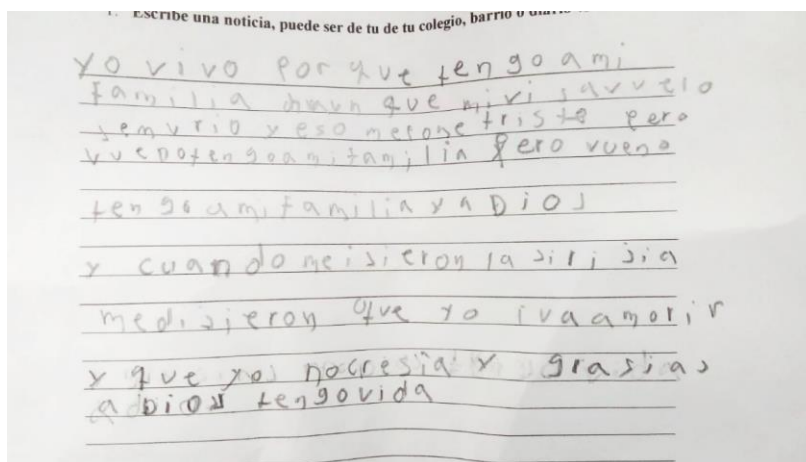 1. Escribe una noticia, puede ser de tu de tu colegio, barrio o
yo vivo por que tengo ami
familia que mi visavvelo
semurio y eso mepone triste pero
vuenotengoamifamilia pero vueno
tengo ami familia y a DiOs
y cuando meisieron la sirisia
medisieron que yo ivaamorir
y que yo nocresia y grasias
a DiOs tengovida